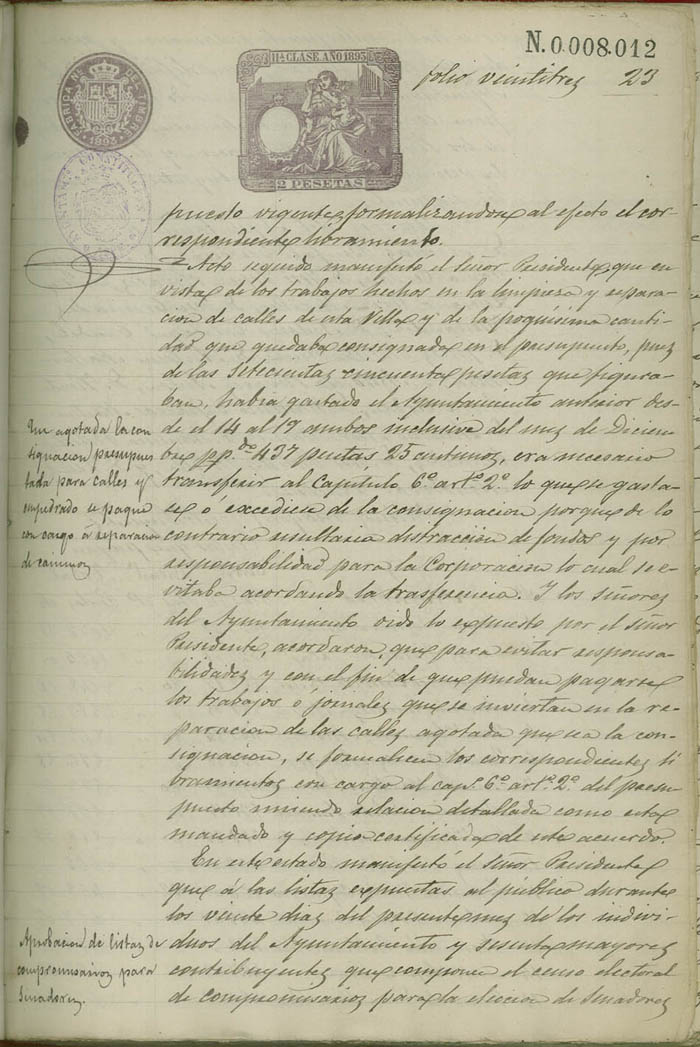 N. 0.008.012
11ª CLASE AÑO 1893
2 PESETAS
FABRICA NAL DEL TIMBRE
1893
folio veintitres 23
puesto vigente, formalizandose al efecto el cor-
respondiente libramiento.
Acto seguido manifestó el Señor Presidente, que en
vista de los trabajos hechos en la limpieza y repara-
cion de calles de esta Villa y de la poquisima canti-
dad que quedaba consignada en el presupuesto, pues
de las setecientas cincuenta pesetas que figura-
ban, habia gastado el Ayuntamiento anterior des-
de el 14 al 19 ambos inclusive del mes de Diciem-
bre pp.do 437 pesetas 25 centimos, era necesario
transferir al Capitulo 6º artº 2º lo que se gasta-
se ó excediese de la consignacion porque de lo
contrario resultaria distraccion de fondos y por
responsabilidad para la Corporacion lo cual se e-
vitaba acordando la trasferencia. Y los señores
del Ayuntamiento oido lo expuesto por el señor
Presidente, acordaron, que para evitar responsa-
bilidades y con el fin de que puedan pagarse
los trabajos ó jornales que se inviertan en la re-
paracion de las calles agotada que sea la con-
signacion, se formalicen los correspondientes li
bramientos con cargo al capº 6º artº 2º del presu-
puesto uniendo relacion detallada como esta
mandado y copia certificada de este acuerdo.
En este estado manifestó el Señor Presidente
que á las listas expuestas al público durante
los veinte dias del presente mes de los indivi-
duos del Ayuntamiento y sesenta mayores
contribuyentes que componen el censo electoral
de compromisarios para la eleccion de Senadores
Que agotada la con
signacion presupues
tada para calles y
empedrado se pague
con cargo á reparacion
de caminos
Aprobacion de listas de
compromisarios para
Senadores.